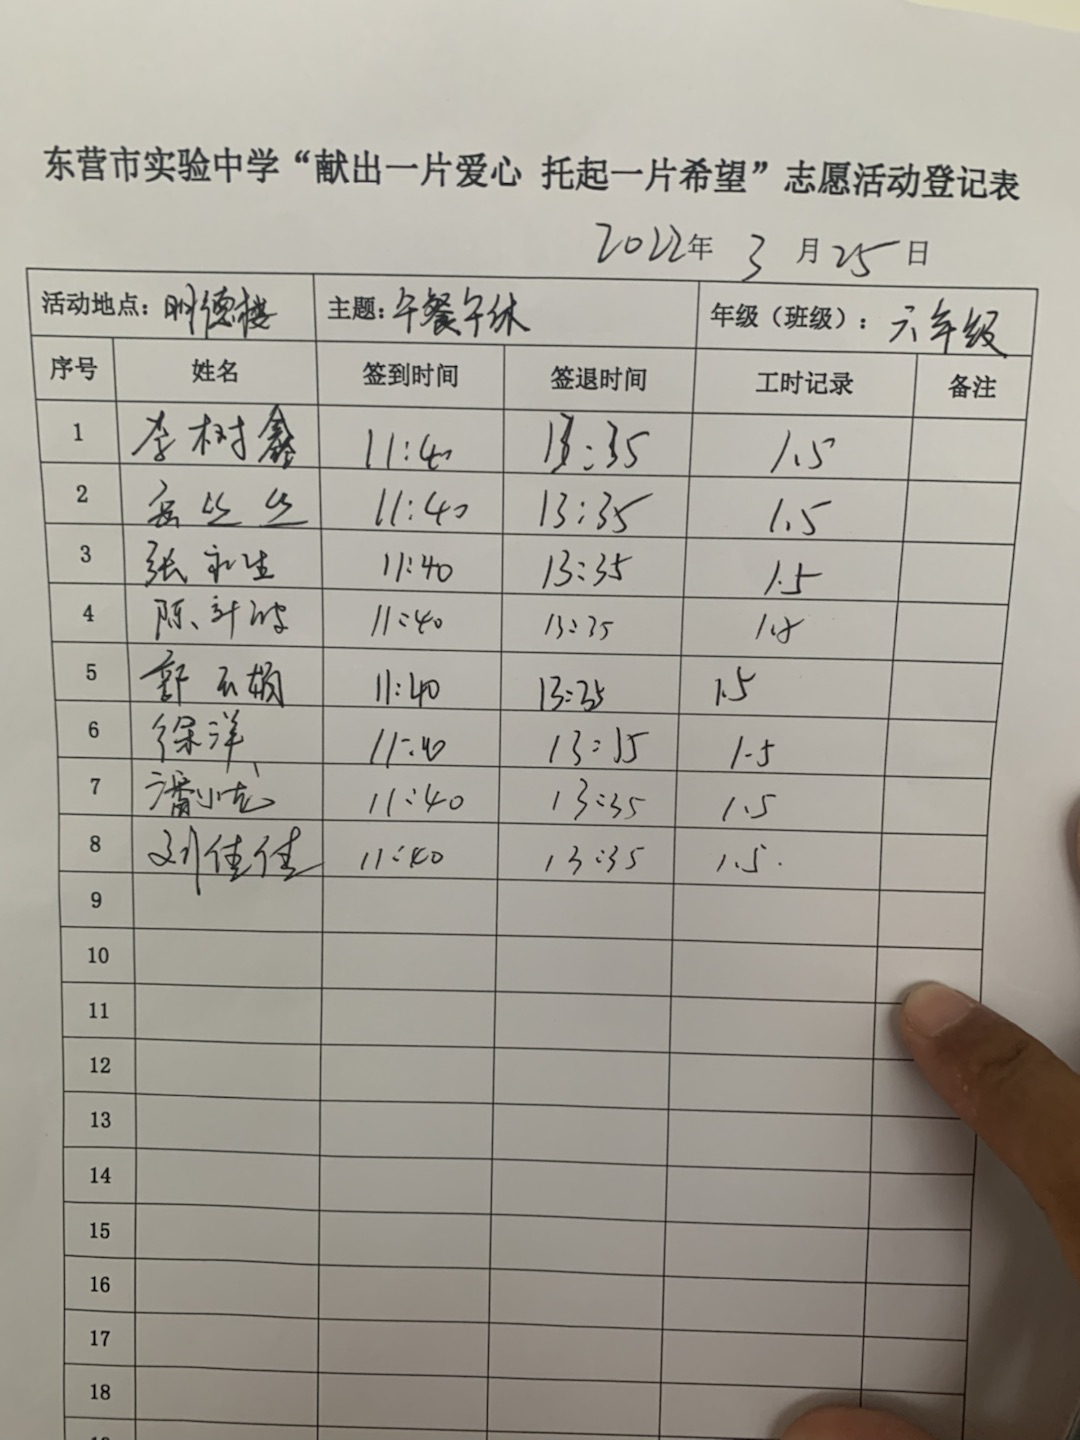 东营市实验中学“献出一片爱心 托起一片希望”志愿活动登记表
2022年 3 月 25 日
活动地点：明德楼 主题：午餐午休 年级（班级）：六年级
序号 姓名 签到时间 签退时间 工时记录 备注
1 李树鑫 11:40 13:35 1.5
2 丛丛 11:40 13:35 1.5
3 张永生 11:40 13:35 1.5
4 陈 11:40 13:35 1.5
5 舒云娟 11:40 13:35 1.5
6 徐洋 11:40 13:35 1.5
7 潘小龙 11:40 13:35 1.5
8 刘佳佳 11:40 13:35 1.5.
9
10
11
12
13
14
15
16
17
18